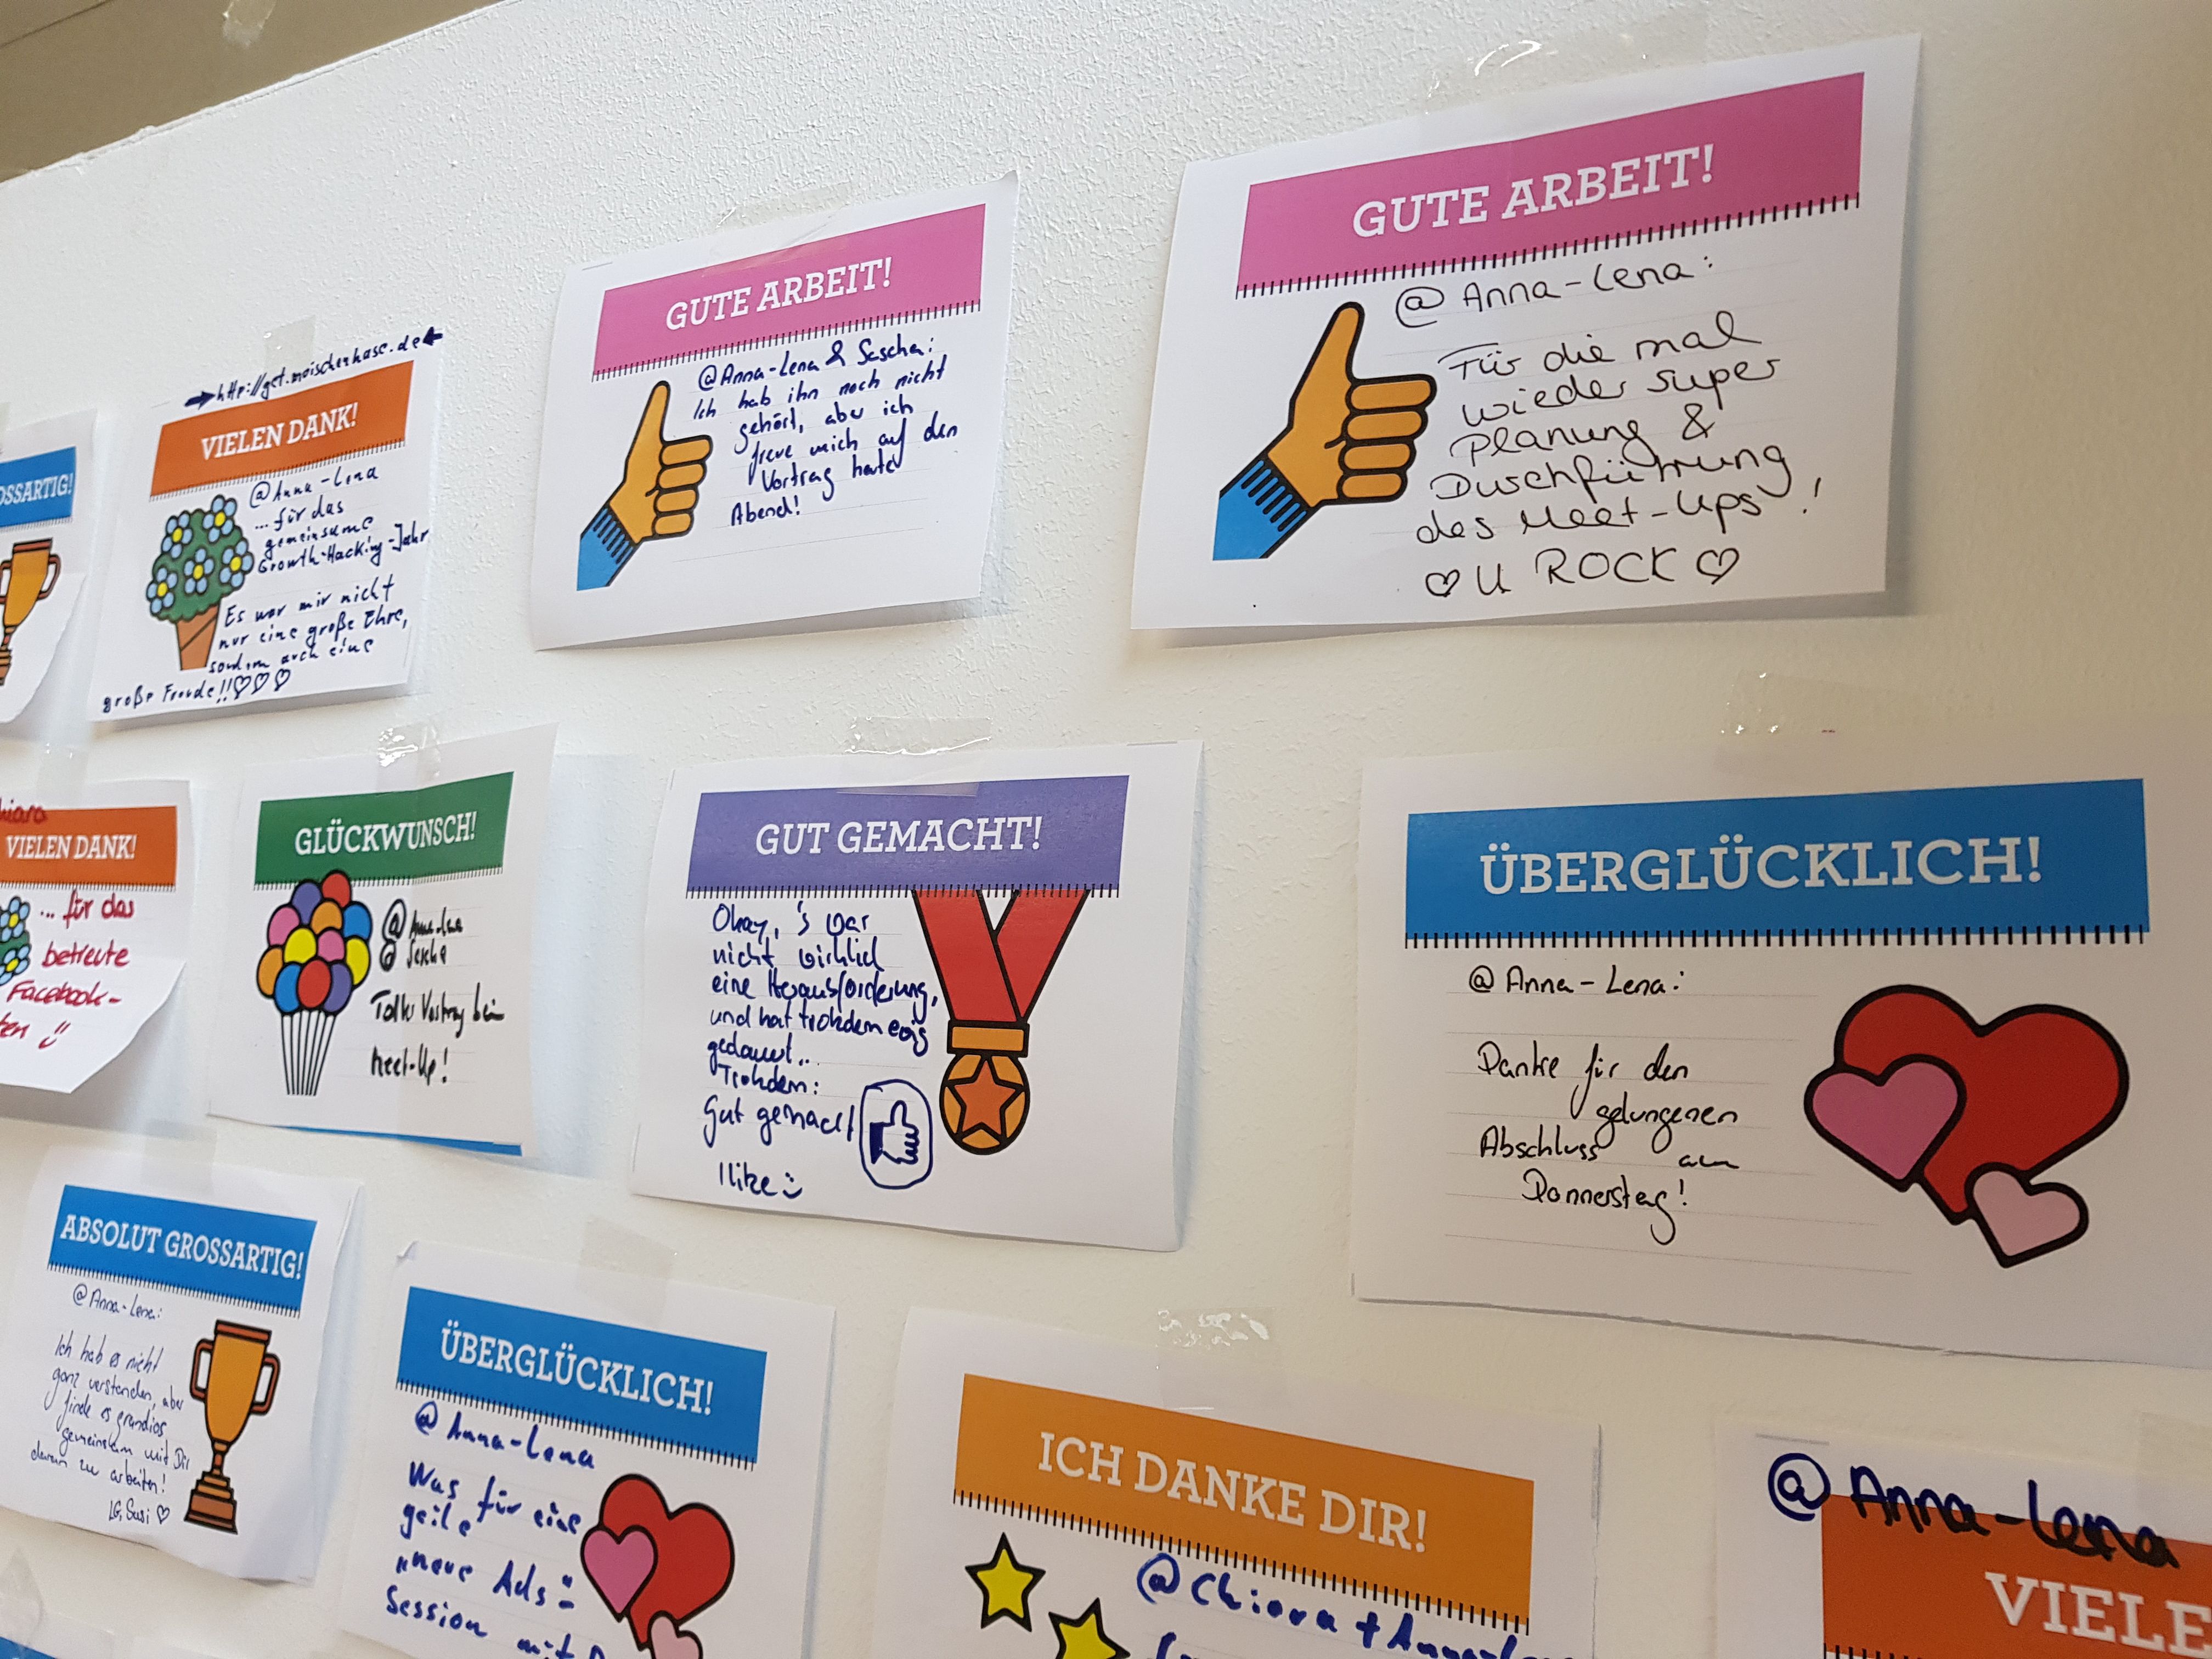 OSSARTIG!
http://get.noischerhase.de
VIELEN DANK!
@Anna-Lena
... für das
gemeinsame
Growth-Hacking-Jahr
Es war mir nicht
nur eine große Ehre,
sondern auch eine
große Freude!!♡♡♡
GUTE ARBEIT!
@Anna-Lena & Sascha:
Ich hab ihn noch nicht
gehört, aber ich
freue mich auf den
Vortrag heute
Abend!
GUTE ARBEIT!
@ Anna-Lena:
Für die mal
wieder super
Planung &
Durchführung
des Meet-Ups!
♡ U ROCK ♡
VIELEN DANK!
... für das
betreute
Facebook-
ten
GLÜCKWUNSCH!
@ Anna-Lena
@ Sascha
Toller Vortrag beim
Meet-Up!
GUT GEMACHT!
Okay, 's war
nicht wirklich
eine Herausforderung,
und hat trotzdem ewig
gedauert..
Trotzdem:
Gut gemacht
I like
ÜBERGLÜCKLICH!
@ Anna-Lena:
Danke für den
gelungenen
Abschluss am
Donnerstag!
ABSOLUT GROSSARTIG!
@ Anna-Lena:
Ich hab es nicht
ganz verstanden, aber
finde es grandios
gemeinsam mit Dir
daran zu arbeiten!
LG, Susi ♡
ÜBERGLÜCKLICH!
@ Anna-Lena
Was für eine
geile
"neue Ads"-
Session mit
ICH DANKE DIR!
@Chiara +
@ Anna-Lena
VIELE